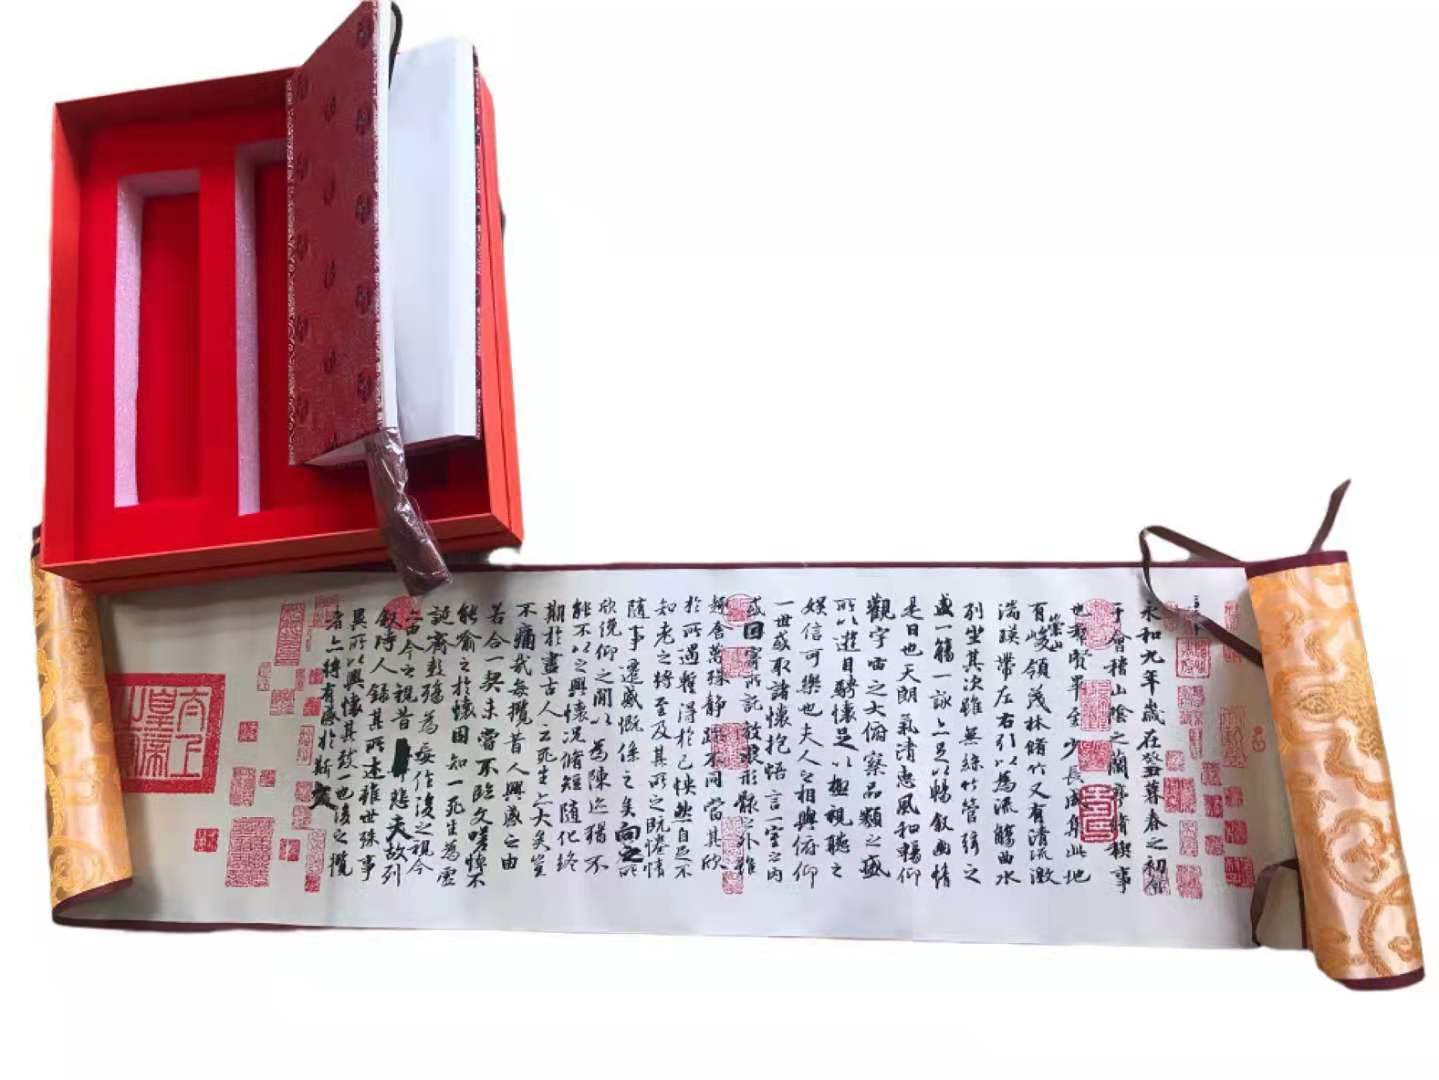 永和九年歲在癸丑暮春之初會
于會稽山陰之蘭亭脩稧事
也群賢畢至少長咸集此地
有崇山峻領茂林脩竹又有清流激
湍暎帶左右引以為流觴曲水
列坐其次雖無絲竹管弦之
盛一觴一詠亦足以暢敘幽情
是日也天朗氣清惠風和暢仰
觀宇宙之大俯察品類之盛
所以遊目騁懷足以極視聽之
娛信可樂也夫人之相與俯仰
一世或取諸懷抱悟言一室之內
或因寄所託放浪形骸之外雖
趣舍萬殊靜躁不同當其欣
於所遇暫得於己怏然自足不
知老之將至及其所之既惓情
隨事遷感慨係之矣向之所
欣俛仰之閒以為陳迹猶不
能不以之興懷況脩短隨化終
期於盡古人云死生亦大矣豈
不痛哉每攬昔人興感之由
若合一契未嘗不臨文嗟悼不
能喻之於懷固知一死生為虛
誕齊彭殤為妄作後之視今
亦由今之視昔悲夫故列
敘時人錄其所述雖世殊事
異所以興懷其致一也後之攬
者亦將有感於斯文
太上皇帝